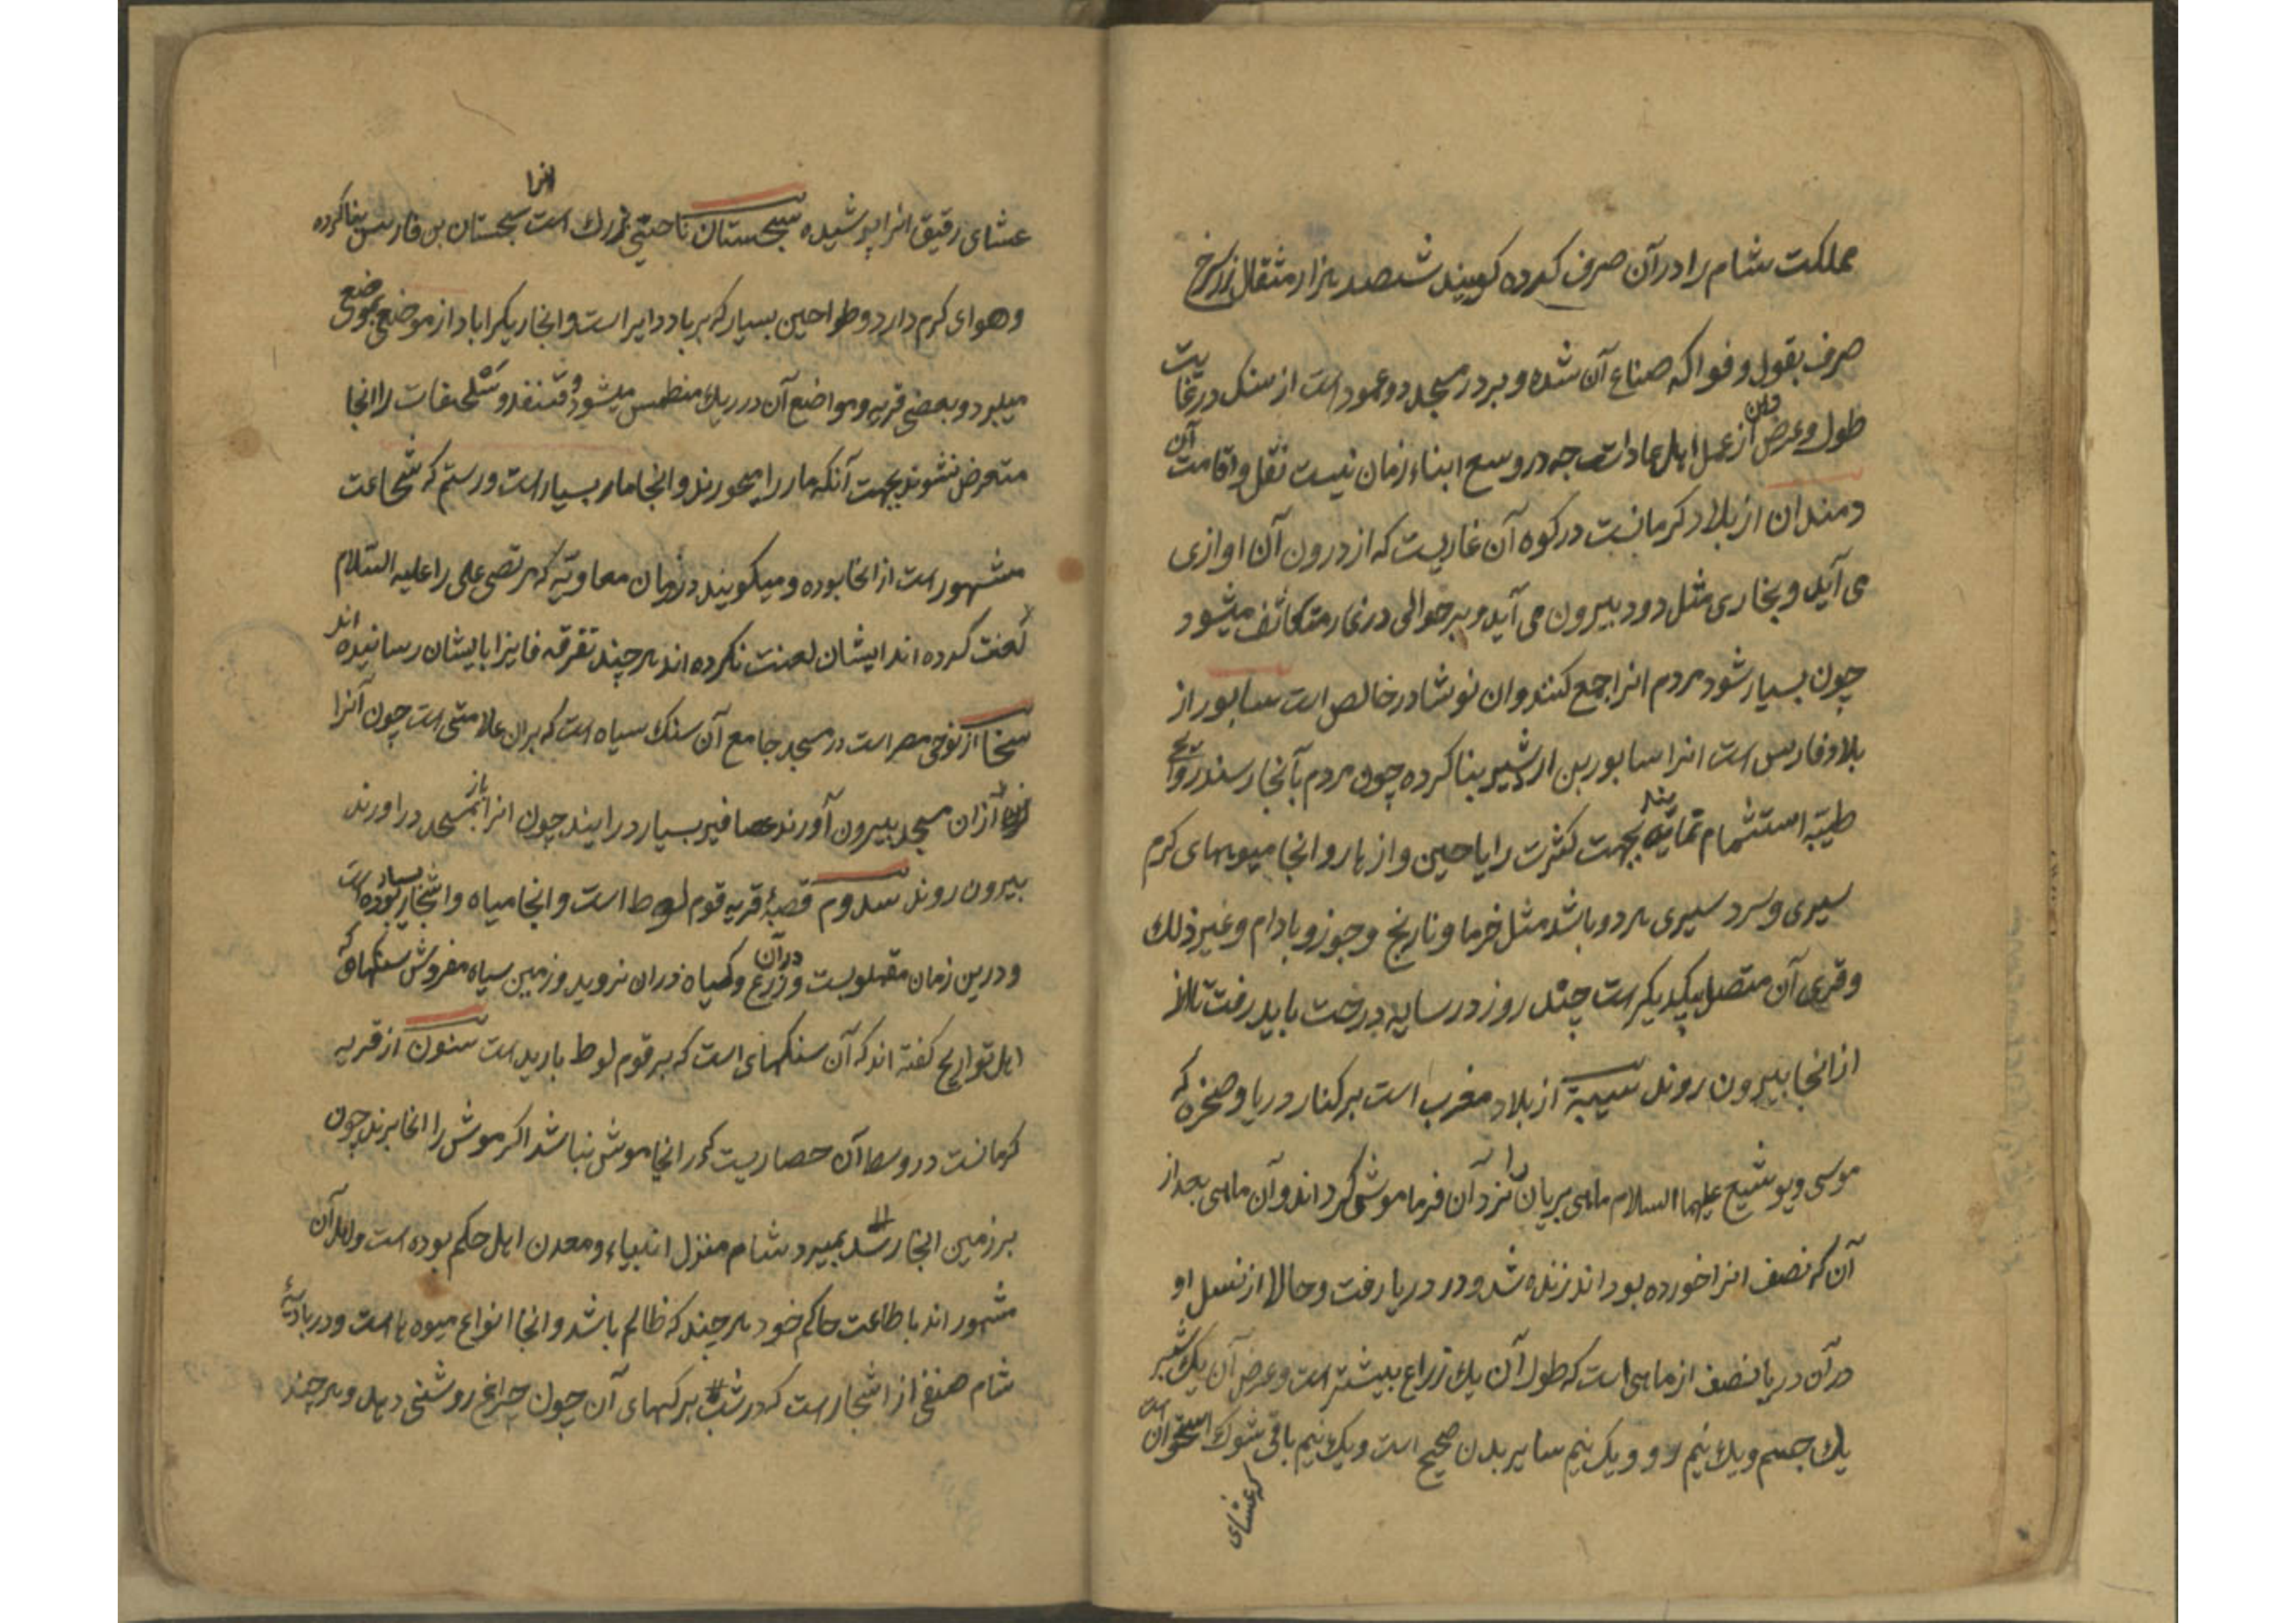 مملکت شام را در آن صرف کرده کویند ششصد هزار مثقال زر سرخ
صرف بقول و فواکه صناع آن شده و بر در مسجد دو عمود است از سنک در غایت
طول و عرض و این از عمل اهل عاد است چه در وسع ابناء زمان نیست نقل و اقامت آن
دمندان از بلاد کرمانست در کوه آن غاریست که از درون آن اوازی
می آید و بخاری مثل دود بیرون می آید و بر حوالی در غار متکاثف میشود
چون بسیار شود مردم انرا جمع کنند و ان نوشادر خالص است سابور از
بلاد فارس است انرا سابور بن اردشیر بنا کرده چون مردم بآنجا رسند روایح
طیبه استشمام نمایند بجهت کثرت رایاحین و ازهار و انجا میوهای کرم
سیری و سرد سیری هر دو باشد مثل خرما و نارنج و جوز و بادام و غیر ذلک
و قری آن متصل بیکدیکر است چند روز در سایه درخت باید رفت تا از
از انجا بیرون روند سیبة از بلاد مغرب است بر کنار دریا و صخره که
موسی و یوشع علیهما السلام ماهی بریان را نزد آن فراموش کرد اند و آن ماهی بعد از
آن که نصف انرا خورده بود اند زنده شد و در دریا رفت و حالا از نسل او
در آن دریا نصف از ماهی است که طول آن یک زراع بیشتر است و عرض آن یک شبر
یک چشم و یک نیم رو و یک نیم سایر بدن صحیح است و یک نیم باقی شوک استخوان است
که عشای
عشای رقیق انرا پوشیده سجستان ناحیتی بزرک است انرا سجستان بن فارس بنا کرده
و هوای کرم دارد و طواحین بسیار که بر باد دایر است و انجا ریک را باد از موضع بموضع
میبرد و بعضی قریه و مواضع آن در ریک منطمس میشود و قنفد و سلحفات را انجا
متعرض نشوند بجهت آنکه مار را میخورند و انجا مار بسیار است و رستم که بشجاعت
مشهور است از انجا بوده و میکویند در زمان معاویه که مرتضی علی را علیه السلام
لعنت کرده اند ایشان لعنت نکرده اند هر چند تفرقه فایزا بایشان رسانیده اند
سخا از نوحی مصر است در مسجد جامع آن سنک سیاه است که بران علامتی است چون آنرا
از ان مسجد بیرون آورند عصافیر بسیار در ایند چون انرا باز بمسجد در اورند
بیرون روند سدوم قصبه قریه قوم لوط است و انجا میاه و اشجار بسیار بوده است
و درین زمان مقلوبست و زرع و کیاه دران نروید و زمین سیاه مفروش در آن سنکهای که
اهل تواریخ کفته اند که آن سنکهای است که بر قوم لوط بارید است سنون از قریه
کرمانست در وسط آن حصاریست که در انجا موش نباشد اکر موش را انجا برند چون
بر زمین انجا رسد بمیرد شام منزل انبیاء و معدن اهل حکم بوده است و اهل آن
مشهور اند باطاعت حاکم خود هر چند که ظالم باشد و انجا انواع میوه ها است و در بادیهٔ
شام صنفی از اشجار است که در شب برکهای آن چون چراغ روشنی دهد و هر چند